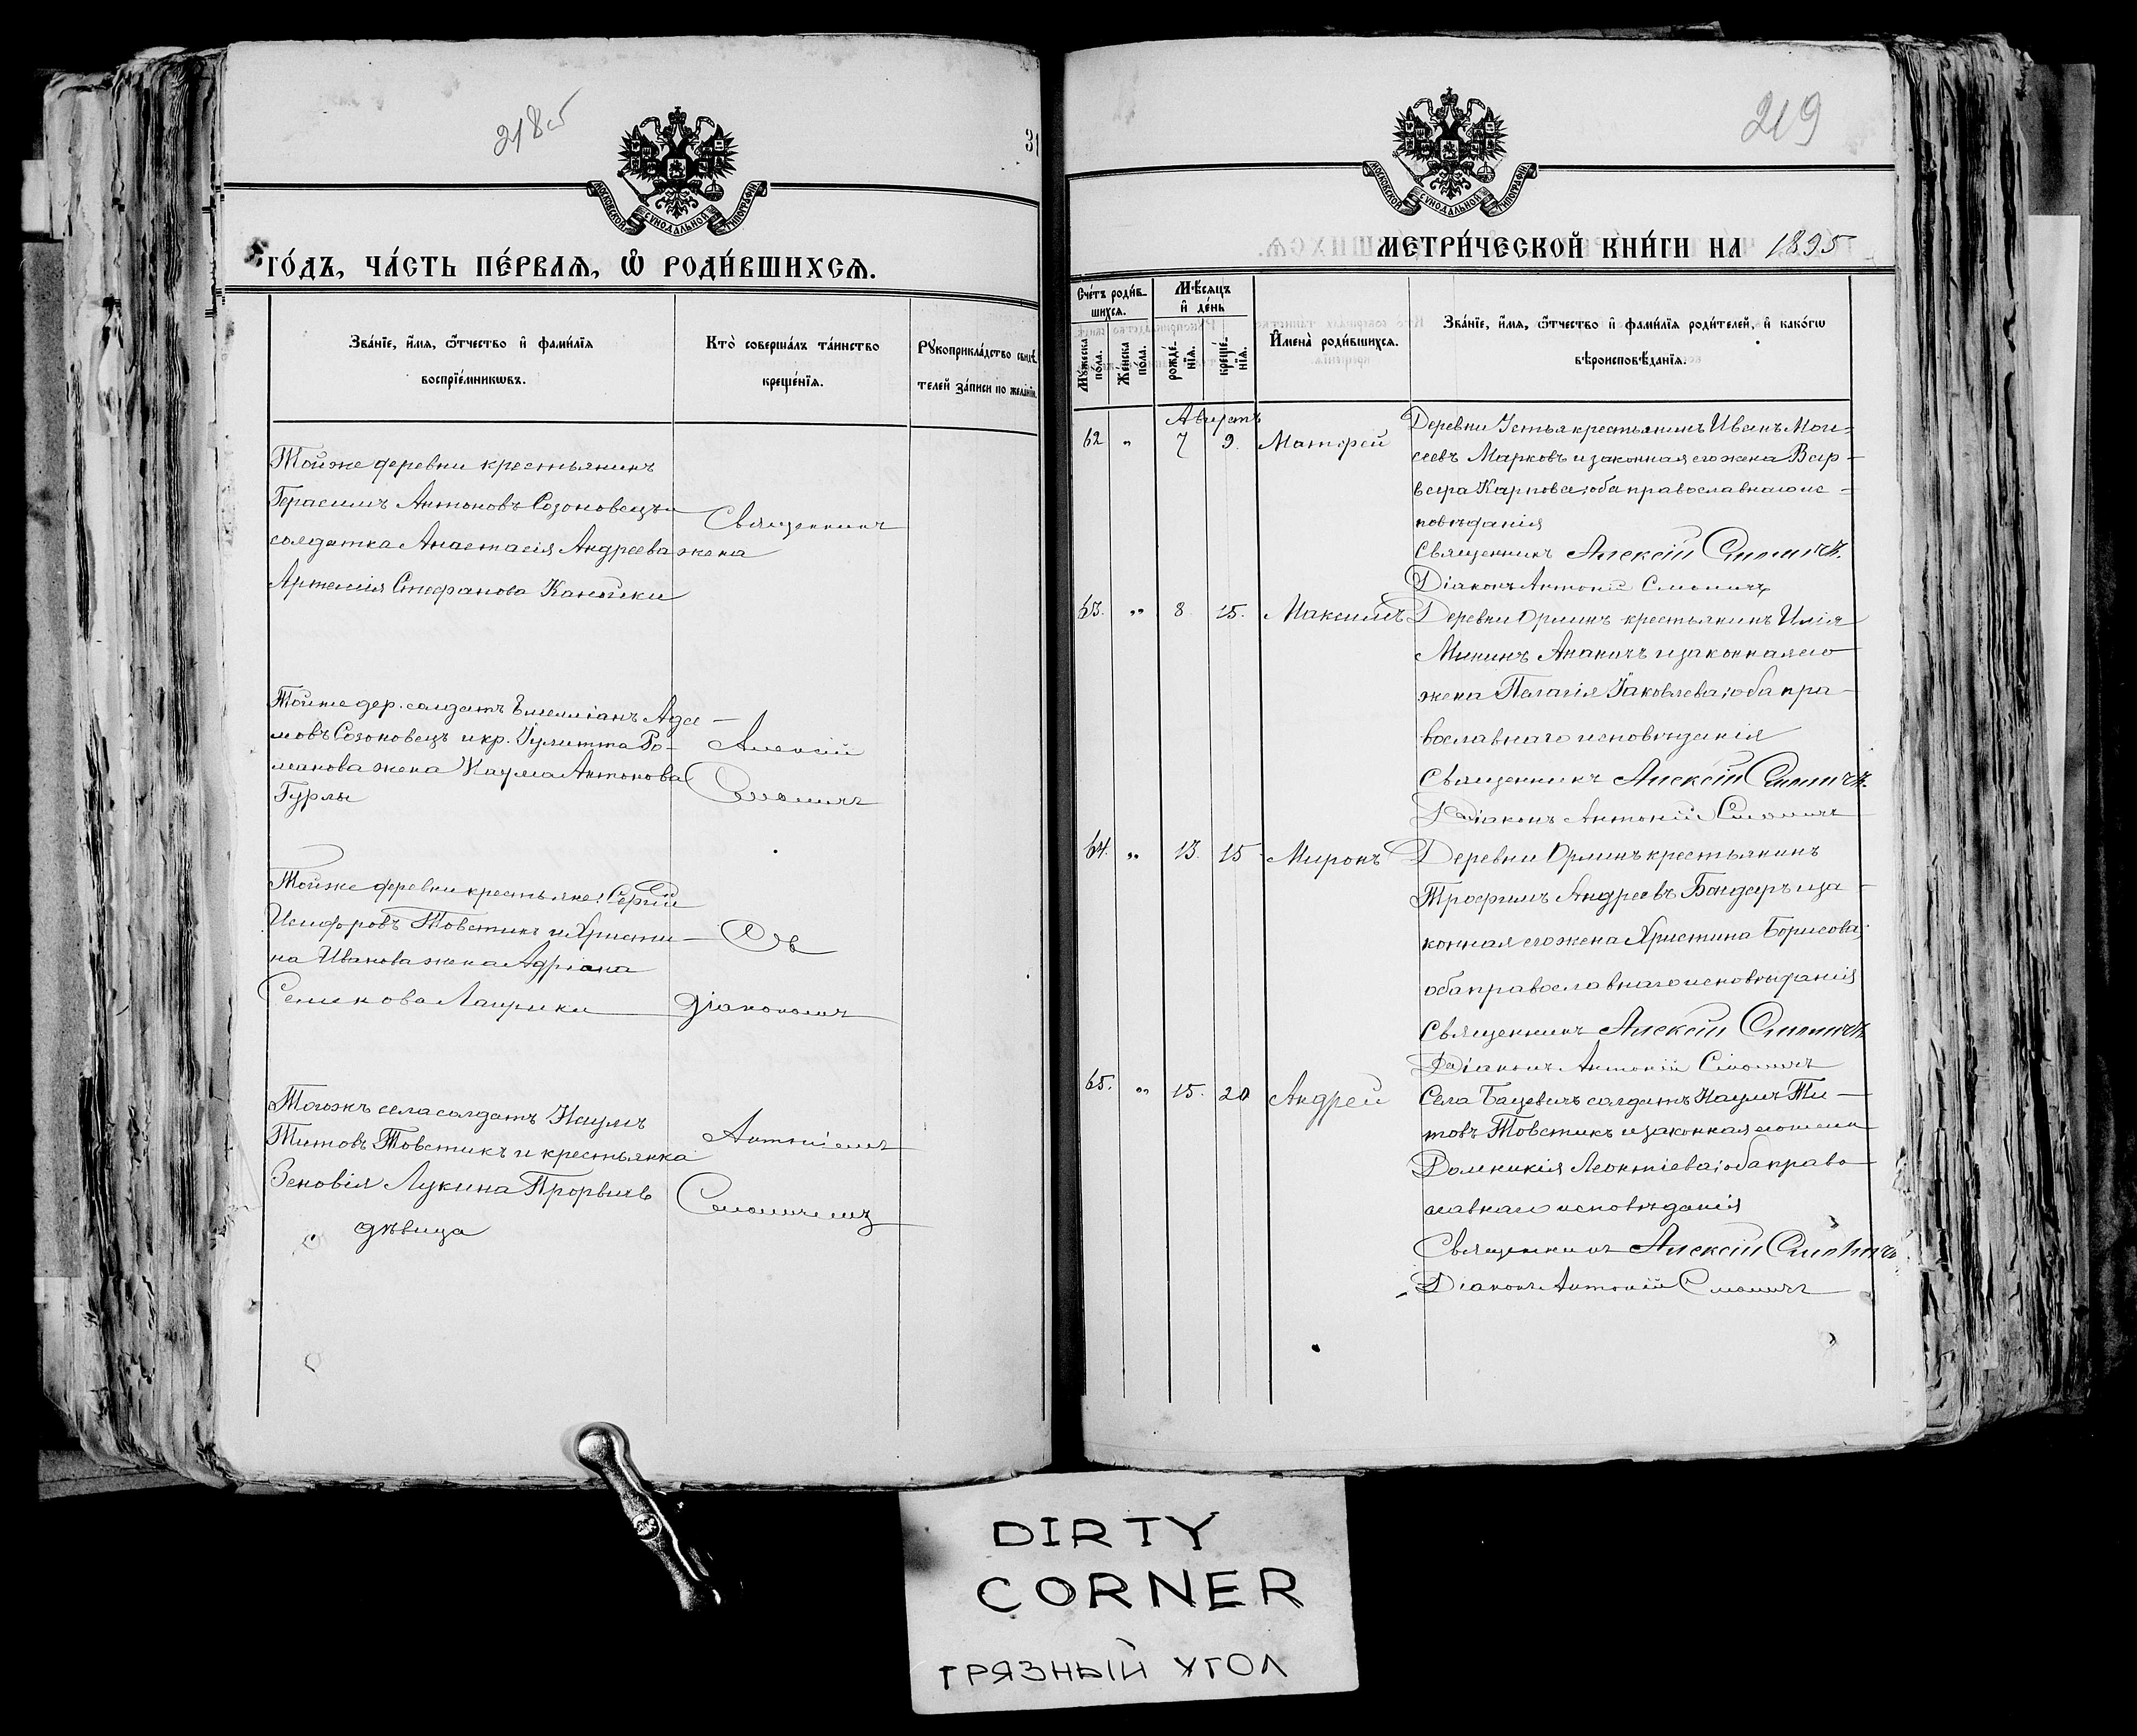 218об
МОСКОВСКОЙ СѴНОДАЛЬНОЙ ТИПОГРАФІИ
го́дъ, ча́сть пе́рваѧ, ѡ҆ роди́вшихсѧ.
Зва́нїе, и҆́мѧ, ѻ҆́тчество и҆ фами́лїѧ
воспрїе́мникѡвъ.
Кто̀ соверша́лъ та́инство
креще́нїѧ.
Рꙋкоприкла́дство свидѣ́
телей за́писи по жела́нїю.
Тойже деревни крестьянинъ
Герасимъ Антоновъ Созоновецъ и
солдатка Анастасія Андреева жена
Артемія Стефанова Канойки
Священникъ
Тойже дер. солдатъ Емеліанъ Ада-
мовъ Созоновецъ и кр. Іулитта Ро-
манова жена Наума Антонова
Гурлы
Алексій
Смоличъ
Тойже деревни крестьяне: Сергій
Никифоровъ Товстикъ и Христи-
на Иванова жена Адріана
Семенова Лаврики
Съ
діакономъ
Тогожъ села солдатъ Наумъ
Титовъ Товстикъ и крестьянка
Зеновія Лукина Прорвичъ
дѣвица
Антоніемъ
Смоличемъ
219
МОСКОВСКОЙ СѴНОДАЛЬНОЙ ТИПОГРАФІИ
метри́ческой кни́ги на 1895
Сче́тъ роди́в-
шихсѧ.
Мѣ́сѧцъ
и҆ де́нь
Мꙋ́жеска по́ла.
Же́нска по́ла.
рожде́-нїѧ.
креще́-нїѧ.
И҆мена̀ роди́вшихсѧ.
Зва́нїе, и҆́мѧ, ѻ҆́тчество и҆ фами́лїѧ роди́телей, и҆ како́гѡ
вѣроисповѣ́данїѧ.
Августъ
62 " 7 9. Матѳей
Деревни Устья крестьянинъ Иванъ Мои-
сеевъ Марковъ и законная его жена Вар-
вара Карпова; оба православнаго ис-
повѣданія
Священникъ Алексій Смоличъ.
Діаконъ Антоній Смоличъ
63. " 8. 15. Максимъ
Деревни Орлинъ крестьянинъ Илія
Мининъ Ананичъ и законная его
жена Пелагія Іаковлева; оба пра-
вославнаго исповѣданія
Священникъ Алексій Смоличъ.
Діаконъ Антоній Смоличъ
64. " 13. 15 Миронъ
Деревни Орлинъ крестьянинъ
Трофимъ Андреевъ Бондаръ и за-
конная его жена Христина Борисова;
оба православнаго исповѣданія
Священникъ Алексій Смоличъ
Діаконъ Антоній Смоличъ
65. " 15. 20 Андрей
Села Бацевичъ солдатъ Наумъ Ти-
товъ Товстикъ и законная его жена
Домникія Леонтіева; оба право-
славнаго исповѣданія
Священникъ Алексій Смоличъ
Діаконъ Антоній Смоличъ
DIRTY
CORNER
ГРЯЗНЫЙ УГОЛ